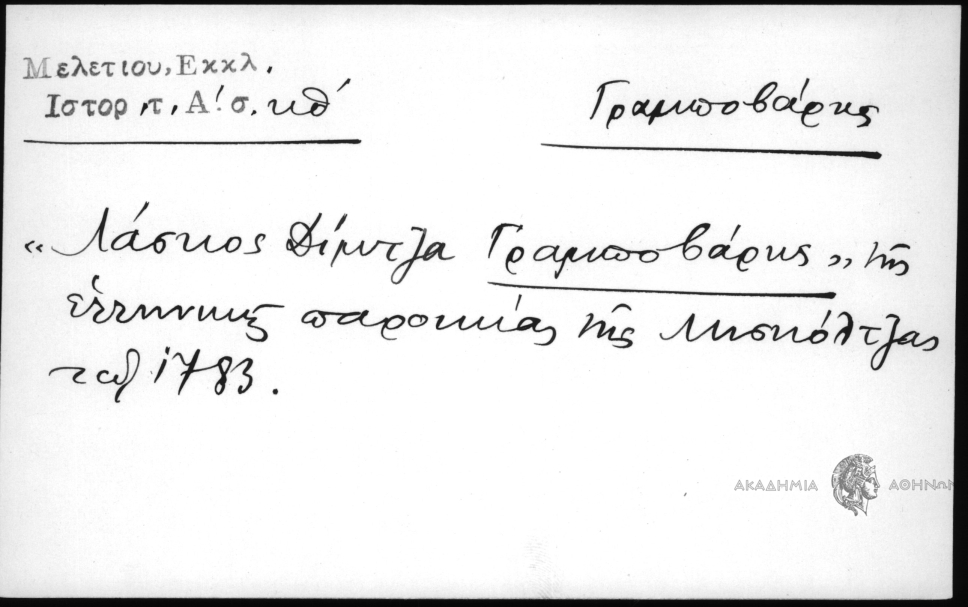 Μελετιου, Εκκλ.
Ιστορ. τ. Α! σ. κθ΄
Γραμποβάρης
« Λάσκος Δίμτζα Γραμποβάρης » τῆς
ἑλληνικῆς παροικίας τῆς Μισκόλτζας
τῷ 1783.
ΑΚΑΔΗΜΙΑ ΑΘΗΝΩΝ